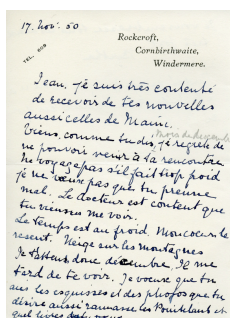 17. Nov: 50
TEL. 609
Rockcroft,
Cornbirthwaite,
Windermere.
Jean, je suis très contente
de recevoir de tes nouvelles
aussi celles de Marie.
Viens, comme tu dis, je regrette de
mois de décembre
ne pouvoir venir à ta rencontre
Ne voyage pas s'il fait trop froid
je ne veux pas que tu prenne
mal. Le docteur est content que
tu viennes me voir.
Le temps est au froid. Mon coeur le
ressent. Neige sur les montagnes
Je t'attends donc décembre, Il me
tard de te voir. Je veux que tu
aies les esquisses et des photos que tu
désire aussi ramasse les
quel livres